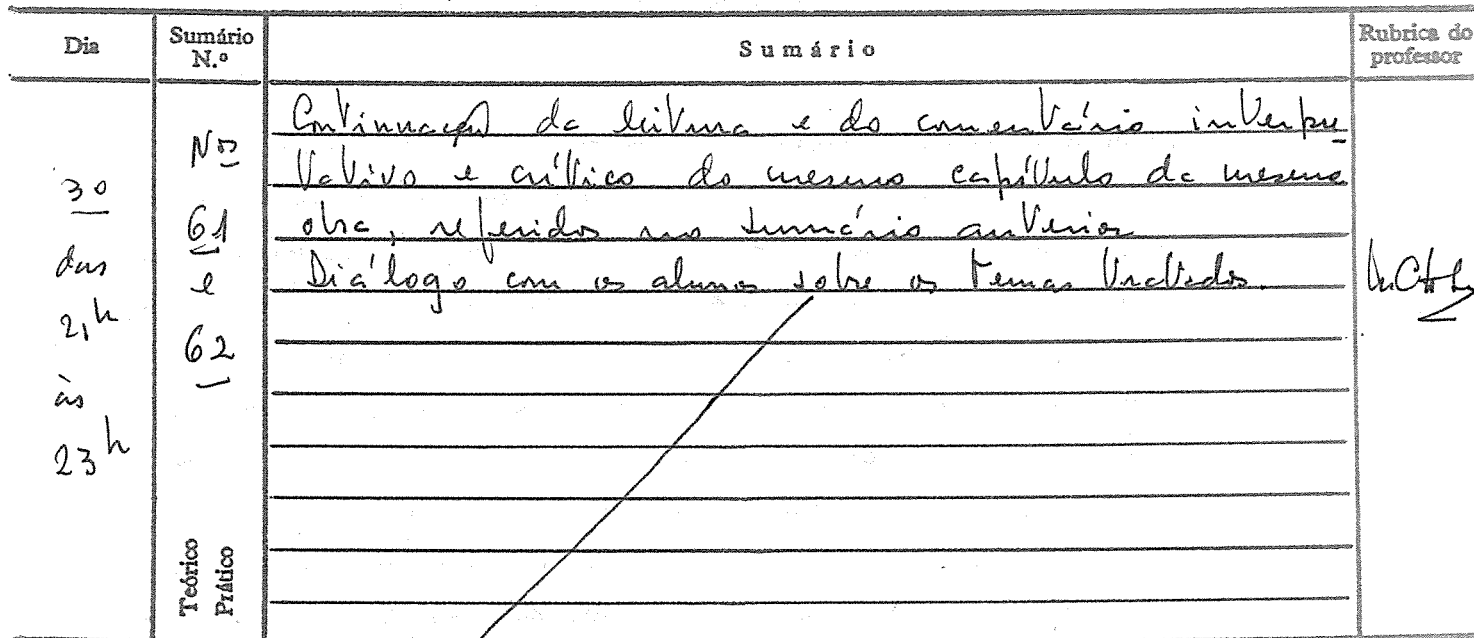 Dia
Sumário N.º
Sumário
Rubrica do professor
30
das
21h
às
23h
Nos
61
e
62
Teórico
Prático
Continuação da leitura e do comentário interpre
tativo e crítico do mesmo capítulo da mesma
obra, referidos no sumário anterior
Diálogo com os alunos sobre os temas tratados.